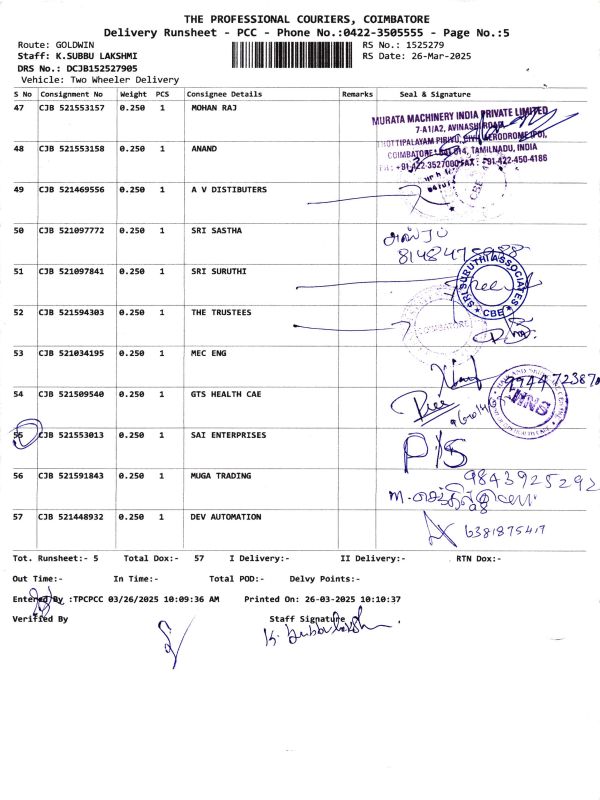 THE PROFESSIONAL COURIERS, COIMBATORE
Delivery Runsheet - PCC - Phone No.:0422-3505555 - Page No.:5
Route: GOLDWIN
RS No.: 1525279
Staff: K.SUBBU LAKSHMI
RS Date: 26-Mar-2025
DRS No.: DCJB152527905
Vehicle: Two Wheeler Delivery
S No Consignment No Weight PCS Consignee Details Remarks Seal & Signature
47 CJB 521553157 0.250 1 MOHAN RAJ
MURATA MACHINERY INDIA PRIVATE LIMITED
7-A1/A2, AVINASHI ROAD
THOTTIPALAYAM PIRIVU, CIVIL AERODROME (PO),
48 CJB 521553158 0.250 1 ANAND
COIMBATORE - 641 014, TAMILNADU, INDIA
49 CJB 521469556 0.250 1 A V DISTIBUTERS
CBE
50 CJB 521097772 0.250 1 SRI SASTHA
51 CJB 521097841 0.250 1 SRI SURUTHI
SRI SURUTHI ASSOCIATES
CBE
52 CJB 521594303 0.250 1 THE TRUSTEES
COIMBATORE
53 CJB 521034195 0.250 1 MEC ENG
54 CJB 521509540 0.250 1 GTS HEALTH CAE
55 CJB 521553013 0.250 1 SAI ENTERPRISES
P/S
56 CJB 521591843 0.250 1 MUGA TRADING
9843925292
57 CJB 521448932 0.250 1 DEV AUTOMATION
6381875417
Tot. Runsheet:- 5 Total Dox:- 57 I Delivery:- II Delivery:- RTN Dox:-
Out Time:- In Time:- Total POD:- Delvy Points:-
Entered By :TPCPCC 03/26/2025 10:09:36 AM Printed On: 26-03-2025 10:10:37
Verified By Staff Signature
K. Subbulakshm